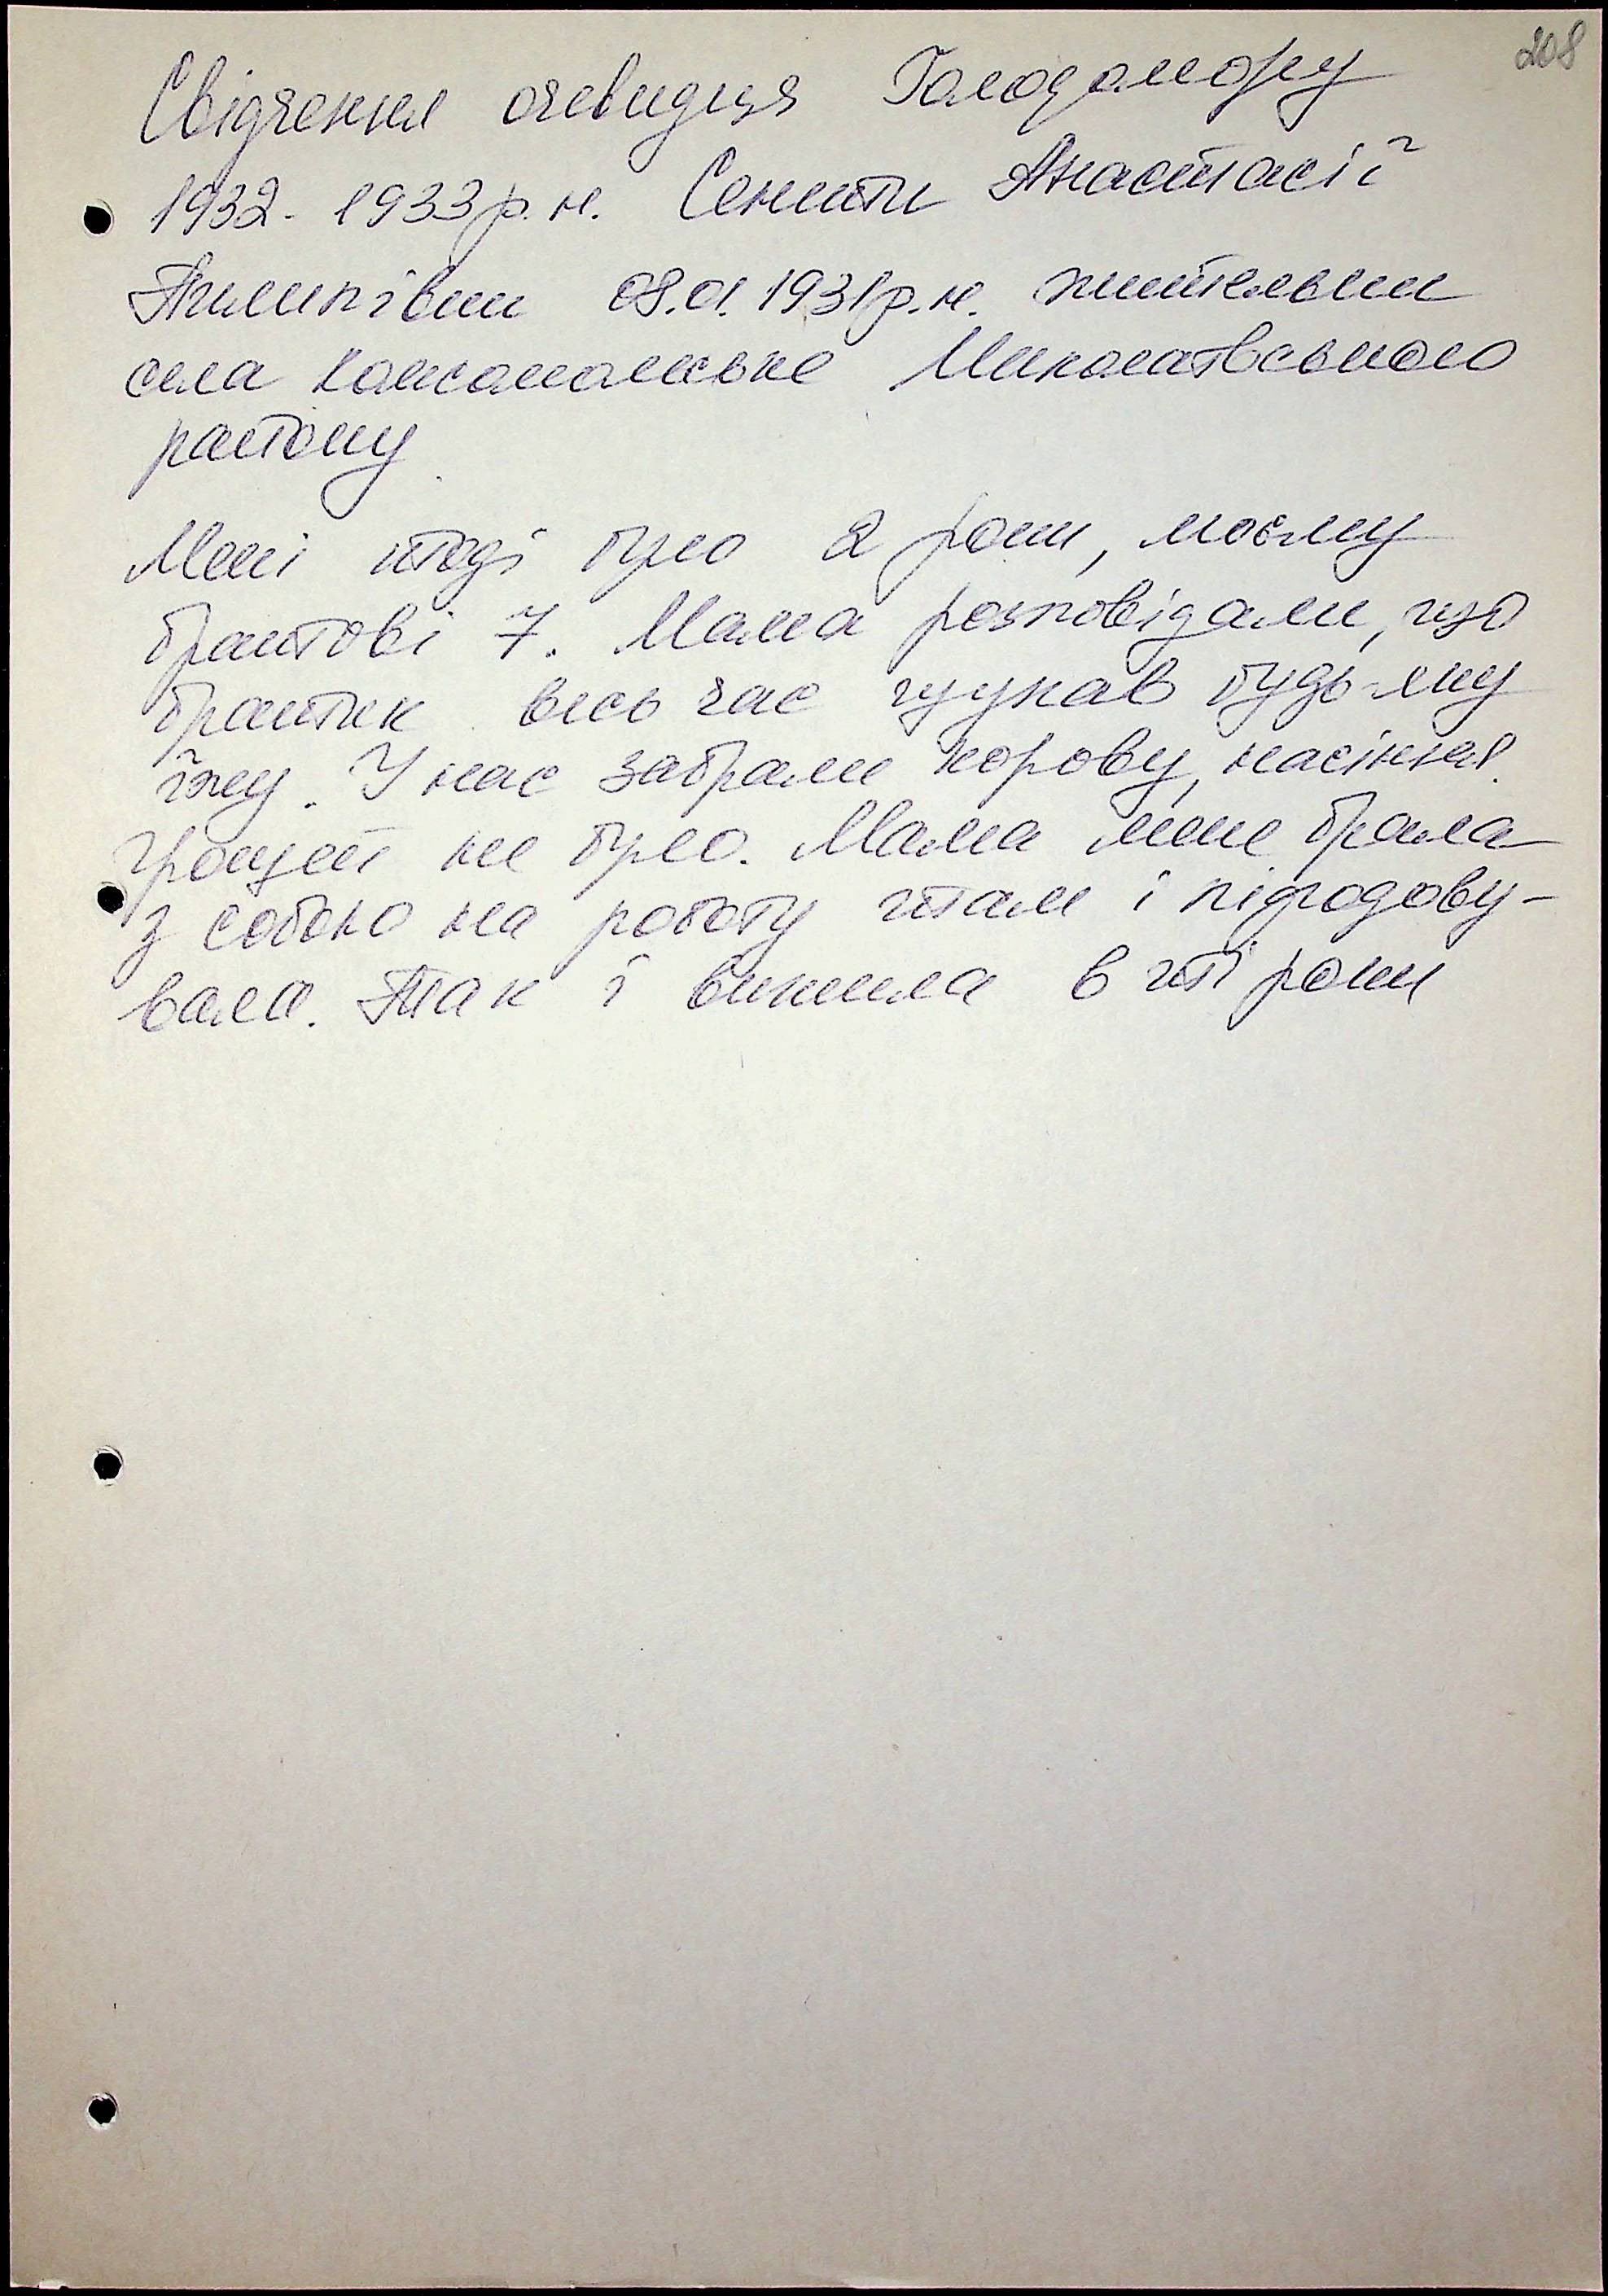 208
Свідчення очевидця Голодомору
1932-1933р.н. Сенити Анастасії
Пилипівни 08.01.1931р.н. жительки
села Комсомольське Миколаївського
району
Мені тоді було 2 роки, моєму
братові 7. Мама розповідали, що
братик весь час шукав будь-яку
їжу. У нас забрали корову, насіння.
Грошей не було. Мама мене брала
з собою на роботу там і підгодову-
вала. Так і вижила в ті роки